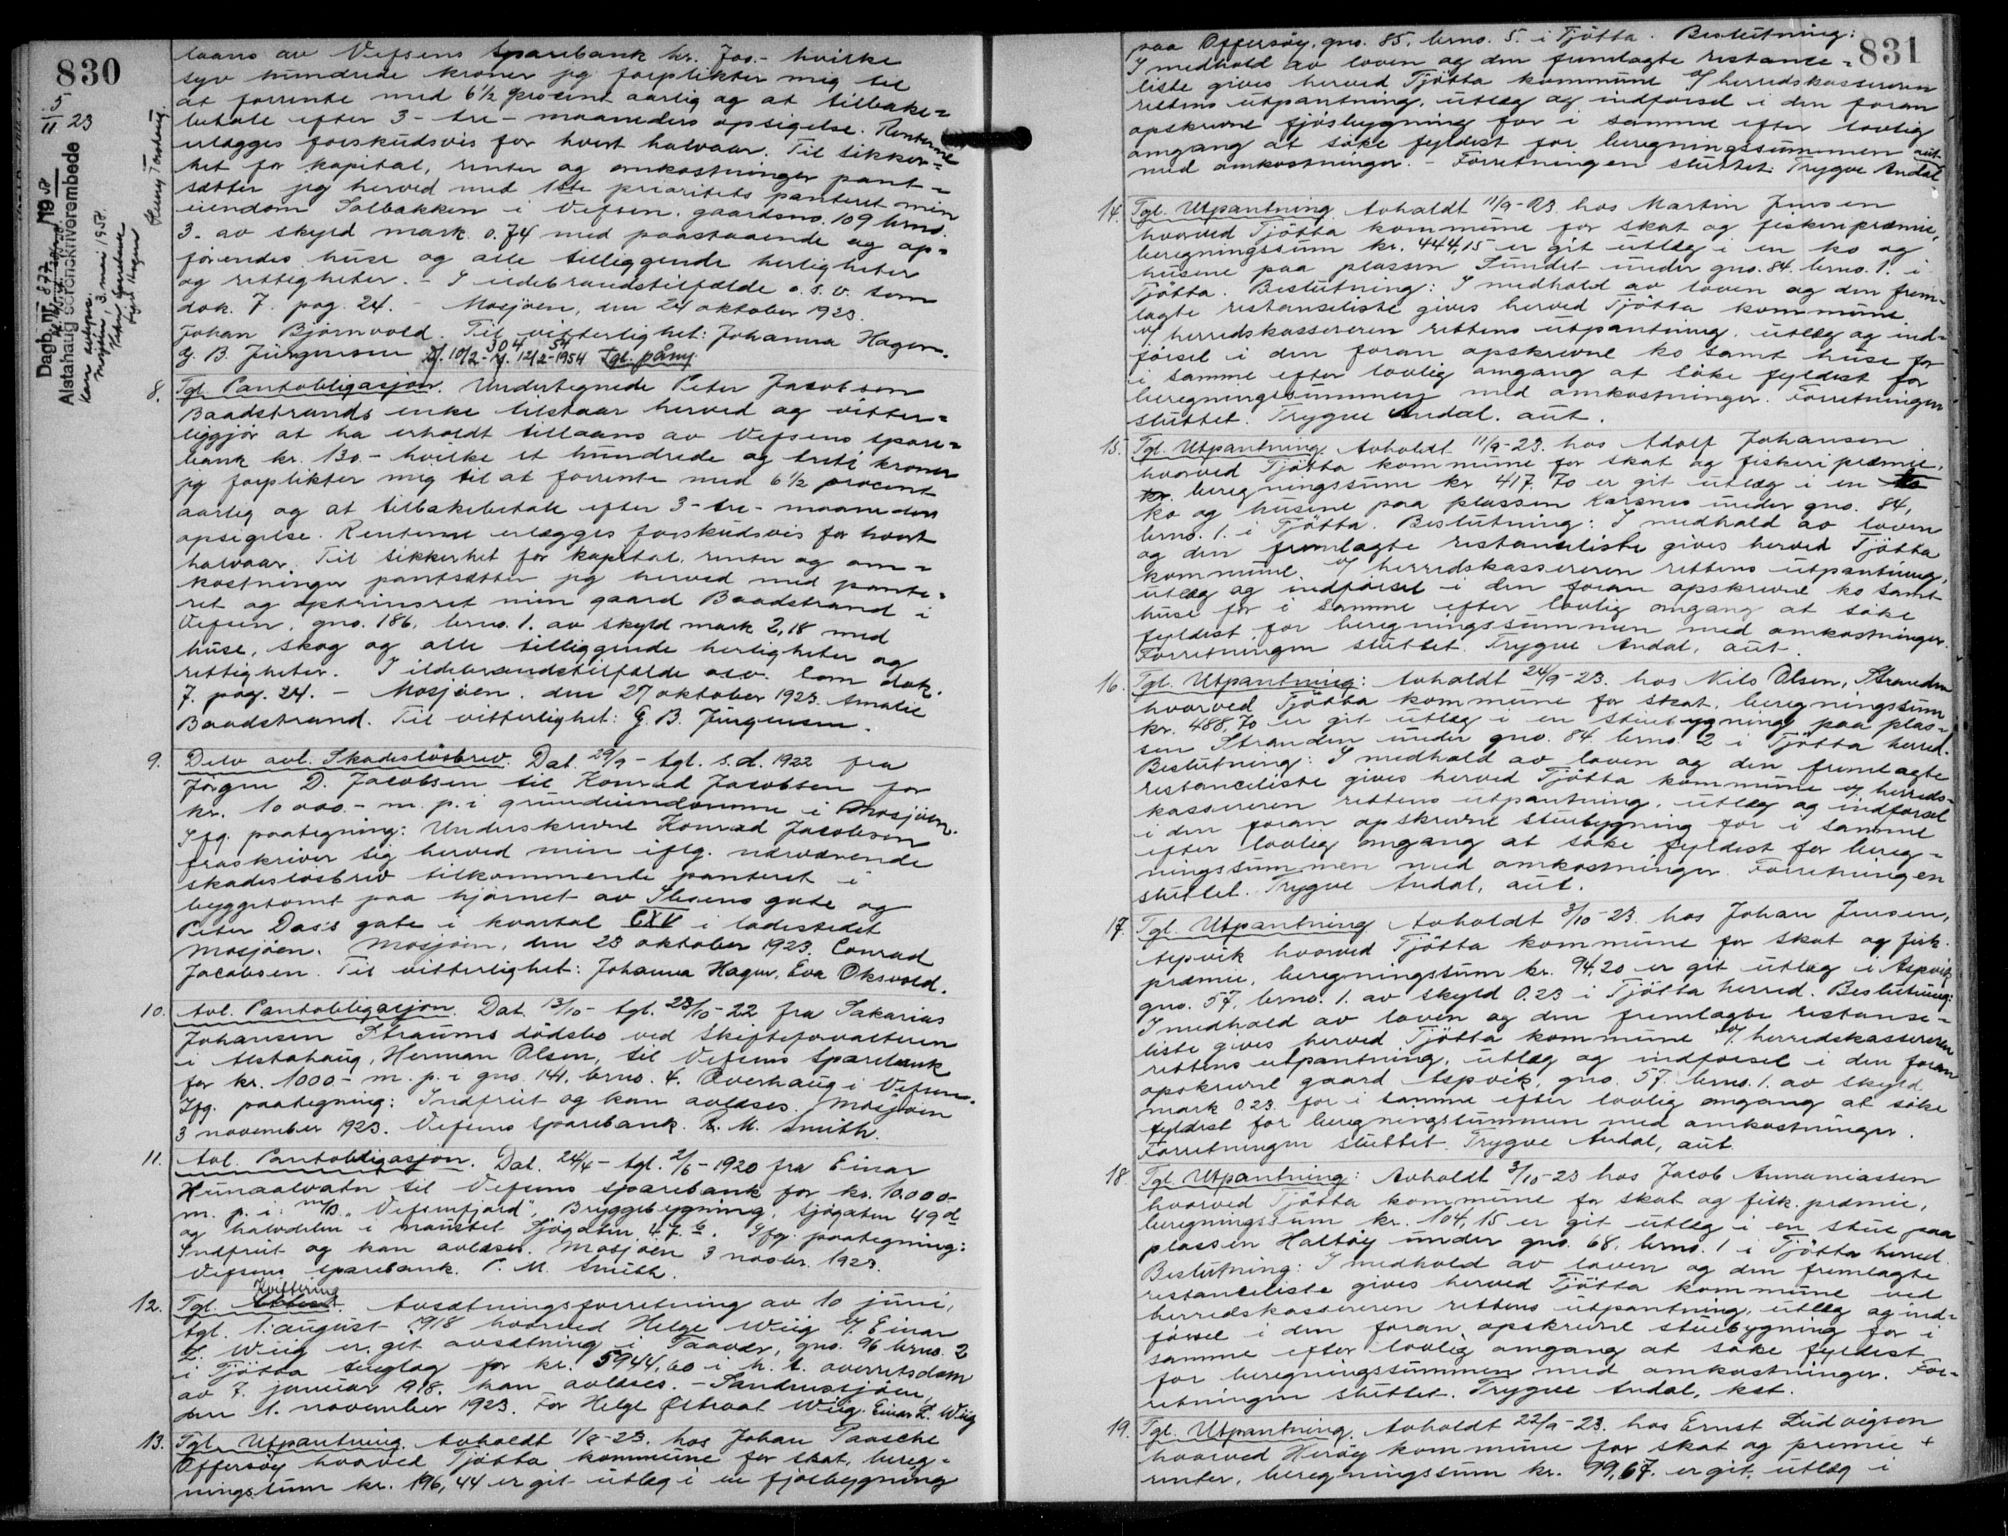 830
5/11 23
Alstahaug sorenskriverembede
Kan avlyses.
Mosjøen, 3. mai 1957.
laans av Vefsens Sparebank kr. 700.- hvilke
syv hundrede kroner jeg forplikter mig til
at forrente med 6½ procent aarlig og at tilbake=
betale efter 3 - tre - maaneders opsigelse. Renterne
erlægges forskudsvis for hvert halvaar. Til sikker=
het for kapital, renter og omkostninger pant=
sætter jeg herved med 1ste prioritets panteret min
eiendom Solbakken i Vefsen, gaardsno. 109 brno.
3. av skyld mark 0.74 med paastaaende og op=
førendes huse og alle tilleggende herligheter
og rettigheter. - I ildebrandstilfælde o.s.v. som
dok. 7. pag. 24. - Mosjøen, den 24 oktober 1923.
Johan Bjørnvold. Til vitterlighet: Johanna Hagen.
G. B. Jürgensen
10/2 - 12/2-1954 Tgl. påny
8. Tgl. Pantobligasjon. Undertegnede Peter Jacobsen
Baadstrands enke tilstaar herved og vitter=
liggjør at ha erholdt tillaans av Vefsens Spare=
bank kr. 130.- hvilke et hundrede og treti kroner
jeg forplikter mig til at forrente med 6½ procent
aarlig og at tilbakebetale efter 3 - tre - maaneders
opsigelse. Renterne erlægges forskudsvis for hvert
halvaar. Til sikkerhet for kapital, renter og om=
kostninger pantsætter jeg herved med pante=
ret og optrinsret min gaard Baadstrand i
Vefsen, gno. 186, brno. 1. av skyld mark 2,18 med
huse, skog og alle tilliggende herligheter og
rettigheter. I ildebrandstilfælde osv. som dok.
7. pag. 24. - Mosjøen, den 27 oktober 1923. Amalie
Baadstrand. Til vitterlighet: G. B. Jürgensen.
9. Delv avl. Skadesløsbrev. Dat. 29/9 - tgl. s.d. 1922 fra
Jørgen D. Jacobsen til Konrad Jacobsen for
kr. 10 000.- m. p. i grundeiendomme i Mosjøen.
Ifg. paategning: Underskrevne Konrad Jacobsen
fraskriver sig herved min iflg. nærværende
skadesløsbrev tilkommende panteret i
byggetomt paa hjørnet av Ibsens gate og
Peter Dass's gate i kvartal CXV i ladestedet
Mosjøen. Mosjøen, den 23 oktober 1923. Conrad
Jacobsen. Til vitterlighet: Johanna Hagen, Eva Oksvold.
10. Avl. Pantobligasjon. Dat. 13/10 - tgl. 23/10-22 fra Sakarias
Johansen Straums dødsbo ved Skifteforvalteren
i Alstahaug, Herman Olsen, til Vefsens Sparebank
for kr. 1000.- m. p. i gno. 141, brno. 4. Overhaug i Vefsen.
Ifg. paategning: Indfriet og kan avlæses. Mosjøen
3 november 1923. Vefsens Sparebank. P. M. Smith.
11. Avl. Pantobligasjon. Dat. 24/4 - tgl. 2/6-1920 fra Einar
Hunaalvatn til Vefsens Sparebank for kr. 10.000.-
m. p. i: m/b. "Vefsenfjord", Bryggebygning, Sjøgaten 49 d
og halvdelen i naustet Sjøgaten Ifg. paategning:
Indfriet og kan avlæses. Mosjøen 3 novbr. 1923.
Vefsens Sparebank. P. M. Smith.
12. Tgl. Kvittering. Avsætningsforretning av 10 juni,
tgl. 1. august 1918 hvorved Helge Wiig v/ Einar
L. Wiig er git avsætning i Taaver, gno. 96 brno. 2
i Tjøtta tinglag for kr. 5944,60 i h. t. overretsdom
av 7. januar 1918. kan avlæses. - Sandnessjøen,
den 1. november 1923. For Helge Wiig. Einar L. Wiig
13. Tgl. Utpantning. Avholdt 1/8-23. hos Johan Paasche
Offersøy hvorved Tjøtta kommune for skat, bereg=
ningssum kr. 196,44 er git utlæg i en fjøsbygning
831
paa Offersøy, gno. 85. brno. 5. i Tjøtta. Beslutning:
I medhold av loven og den fremlagte restance=
liste gives herved Tjøtta kommune v/ herredskassereren
rettens utpantning, utlæg og indførsel i den foran
opskrevne fjøsbygning for i samme efter lovlig
omgang at søke fyldest for beregningssummen
med omkostninger. - Forretningen sluttet. Trygve Andal aut.
14. Tgl. Utpantning Avholdt 11/9-23 hos Martin Jensen
hvorved Tjøtta kommune for skat og fiskeripræmie,
beregningssum kr. 444,15 er git utlæg i en ko og
husene paa plassen Sundet under gno. 84. brno. 1. i
Tjøtta. Beslutning: I medhold av loven og den frem=
lagte restanseliste gives herved Tjøtta kommune
v/ herredskassereren rettens utpantning, utlæg og ind=
førsel i den foran opskrevne ko samt huse for
i samme efter lovlig omgang at søke fyldest for
beregningssummen med omkostninger. Forretningen
sluttet. Trygve Andal. aut.
15. Tgl. Utpantning Avholdt 11/9-23. hos Adolf Johansen
hvorved Tjøtta kommune for skat og fiskeripræmie,
kr. beregningssum kr 417,70 er git utlæg i en ko
ko og husene paa plassen Karsnes under gno. 84,
brno. 1. i Tjøtta. Beslutning: I medhold av loven
og den fremlagte restanseliste gives herved Tjøtta
kommune. v/ herredskassereren rettens utpantning,
utlæg og indførsel i den foran opskrevne ko samt
huse for i samme efter lovlig omgang at søke
fyldest for beregningssummen med omkostninger.
Forretningen sluttet. Trygve Andal, aut.
16. Tgl. Utpantning: Avholdt 24/9-23. hos Nils Olsen, Stranden
hvorved Tjøtta kommune for skat, beregningssum
kr. 488,70 er git utlæg i en stuebygning paa plas=
sen Stranden under gno. 84 brno. 2 i Tjøtta herred.
Beslutning: I medhold av loven og den fremlagte
restanceliste gives herved Tjøtta kommune v/ herreds=
kassereren rettens utpantning, utlæg og indførsel
i den foran opskrevne stuebygning for i samme
efter lovlig omgang at søke fyldest for bereg=
ningssummen med omkostninger. Forretningen
sluttet. Trygve Andal, aut.
17. Tgl. Utpantning Avholdt 3/10-23. hos Johan Jensen,
Aspvik hvorved Tjøtta kommune for skat og fisk.
præmie, beregningssum kr. 94,20 er git utlæg i Aspvik
gno. 57, brno. 1. av skyld 0.23 i Tjøtta herred. Beslutning:
I medhold av loven og den fremlagte restanse=
liste gives herved Tjøtta kommune v/ herredskassereren
rettens utpantning, utlæg og indførsel i den foran
opskrevne gaard Aspvik, gno. 57. brno. 1. av skyld
mark 0.23. for i samme efter lovlig omgang at søke
fyldest for beregningssummen med omkostninger.
Forretningen sluttet. Trygve Andal, aut
18. Tgl. Utpantning: Avholdt 3/10-23 hos Jacob Annaniassen
hvorved Tjøtta kommune for skat og fisk. præmie,
beregningssum kr. 104,15 er git utlæg i en stue paa
plassen Haltøy under gno. 68. brno. 1 i Tjøtta herred.
Beslutning: I medhold av loven og den fremlagte
restanceliste gives herved Tjøtta kommune ved
herredskassereren rettens utpantning, utlæg og ind=
førsel i den foran opskrevne stuebygning for i
samme efter lovlig omgang at søke fyldest
for beregningssummen med omkostninger. For=
retningen sluttet. Trygve Andal, kst.
19. Tgl. Utpantning. Avholdt 22/9-23. hos Ernst Ludvigsen
hvorved Herøy kommune for skat og premie +
renter, beregningssum kr. 99,67. er git utlæg i